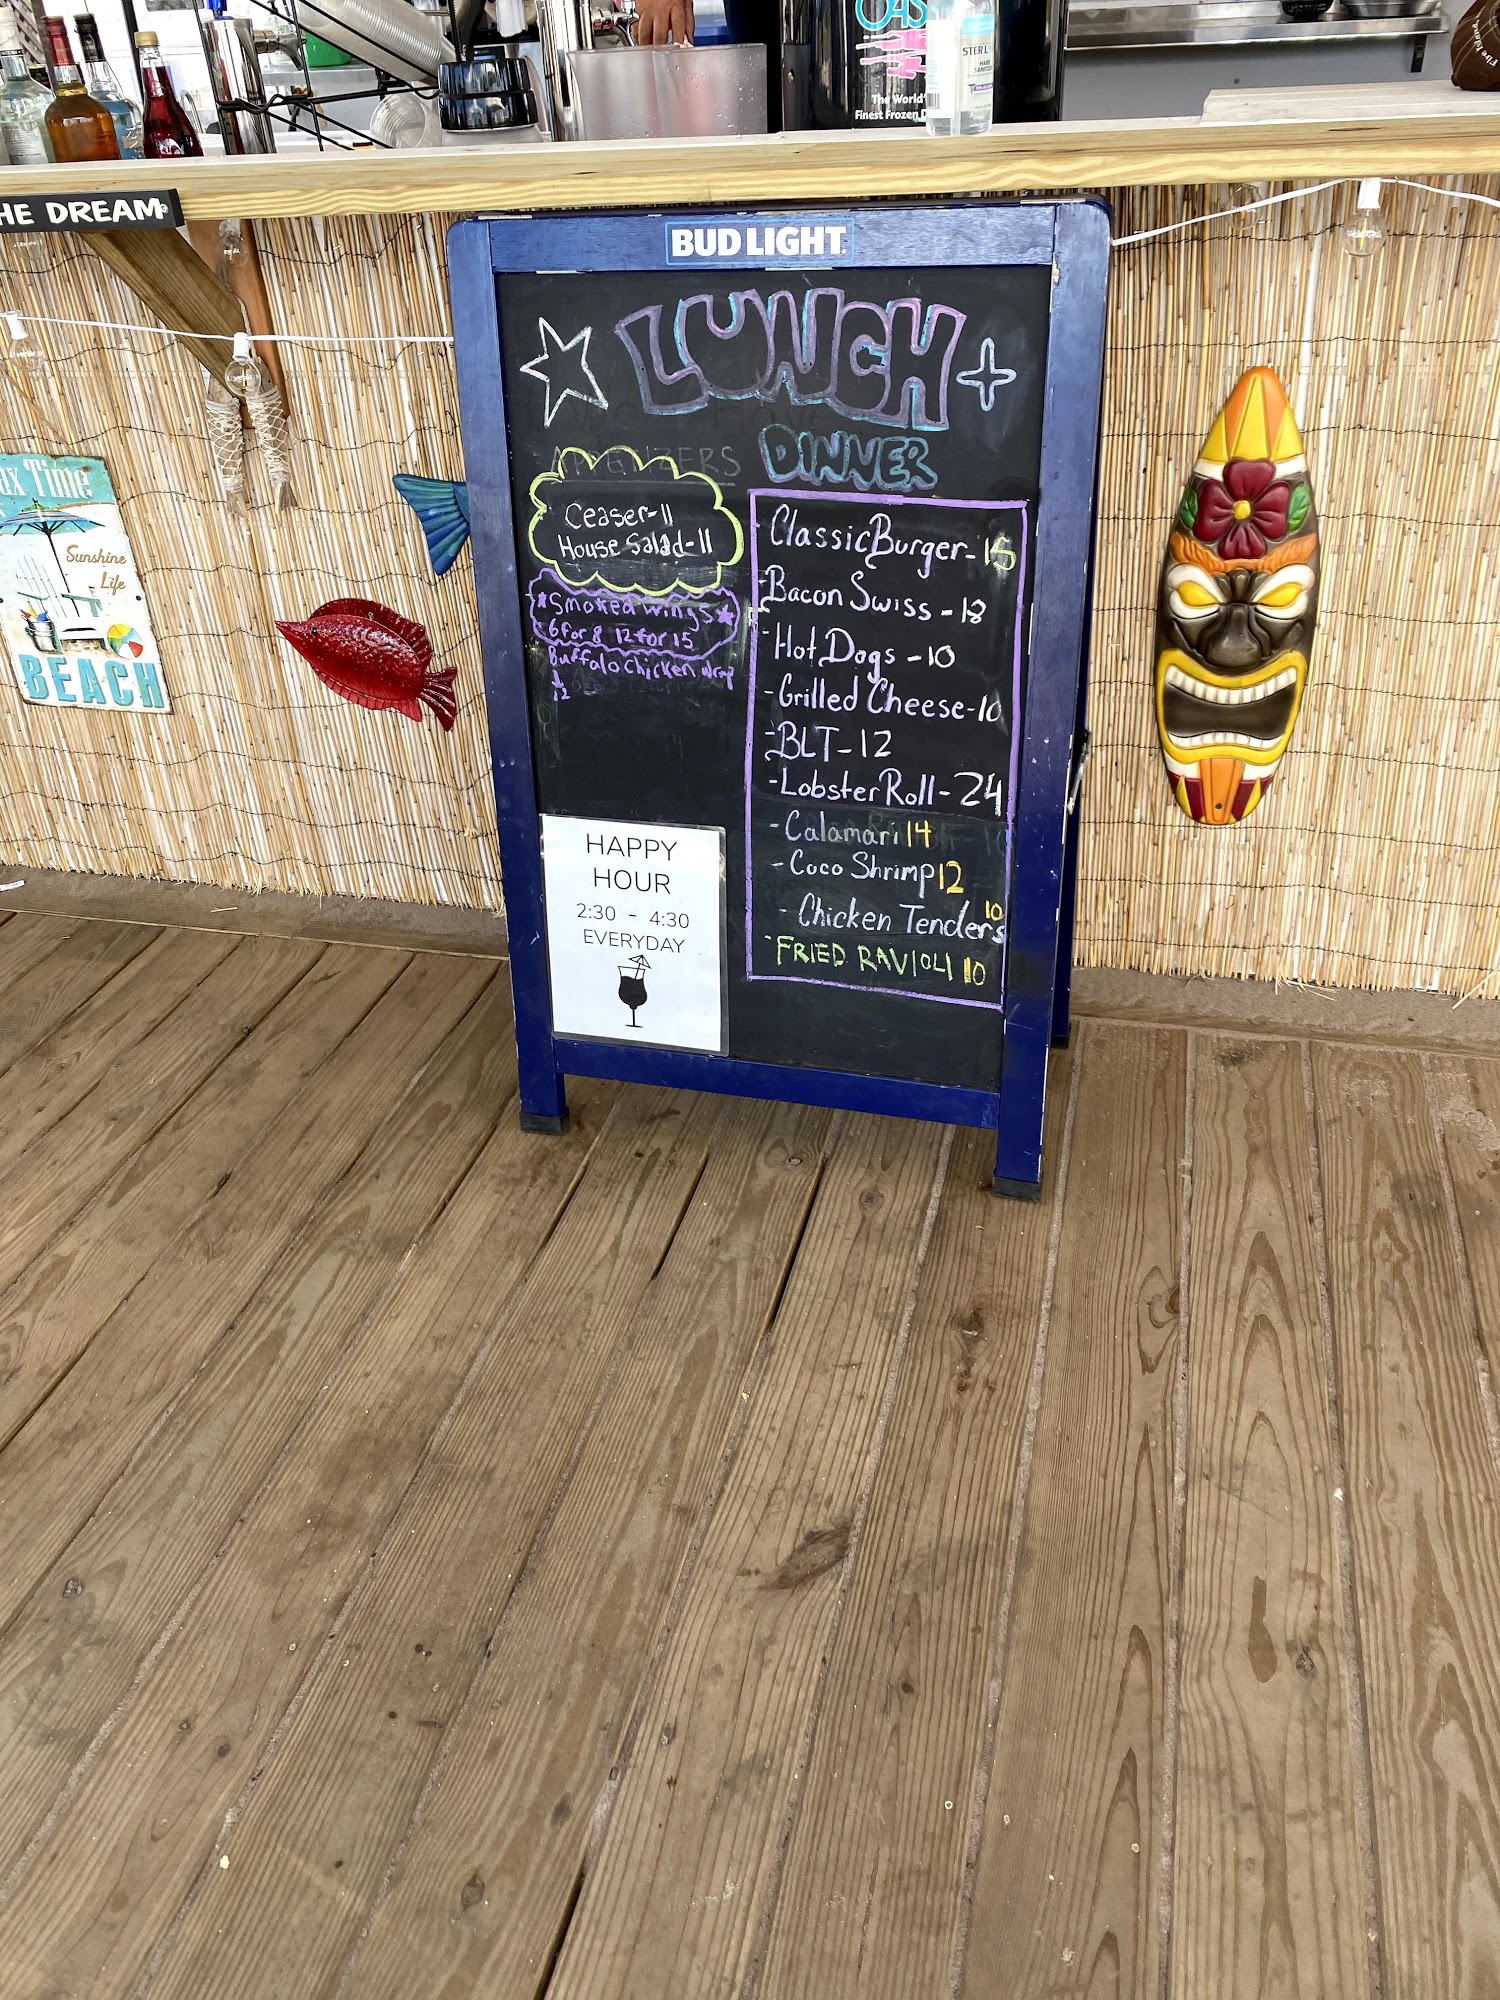 OAS
STERL
HAND
SANITIZER
The World'
Finest Frozen D
Fire Island
HE DREAM
BUD LIGHT
LUNCH +
DINNER
APPETIZERS
Ceaser-11
House Salad-11
*Smoked Wings*
6 for 8 12 for 15
Buffalo Chicken Wrap
12
Classic Burger-15
-Bacon Swiss - 18
-Hot Dogs - 10
-Grilled Cheese-10
-BLT-12
-Lobster Roll-24
-Calamari 14
-Coco Shrimp 12
-Chicken Tenders 10
-FRIED RAVIOLI 10
HAPPY
HOUR
2:30 - 4:30
EVERYDAY
ax Time
Sunshine
Life
BEACH